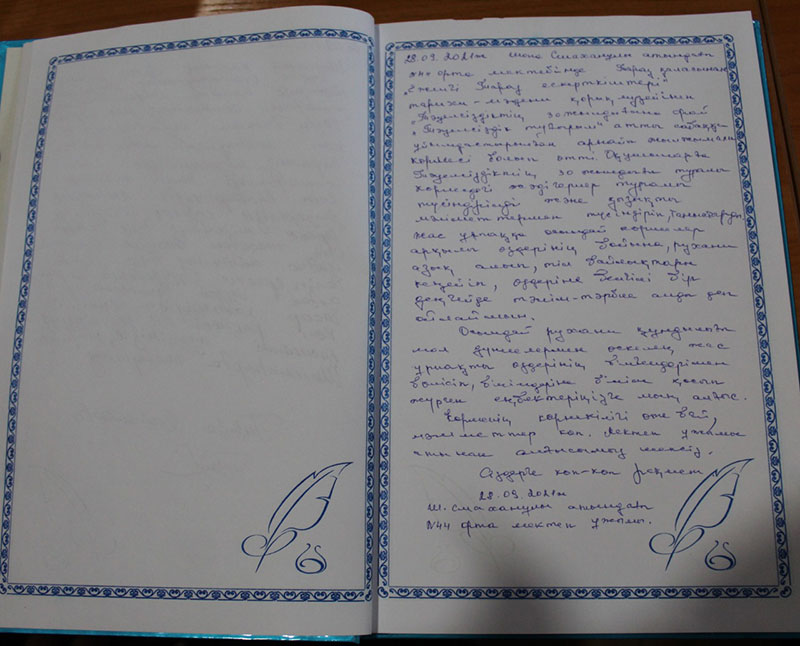 28.09.2021ж Шона Смаханұлы атындағы
№44 орта мектебінде Тараз қаласынан
"Ежелгі Тараз ескерткіштері"
тарихи-мәдени қорық-музейінің
"Тәуелсіздіктің 30 жылдығына орай
"Тәуелсіздік тұғырым" атты
ұйымдастырылған арнайы жылжымалы
көрмесі болып өтті. Оқушыларға
Тәуелсіздіктің 30 жылдығы туралы
көрмедегі жәдігерлер туралы
түсіндірді және
мәліметтермен түсіндіріп, таныстырды.
Жас ұрпаққа осындай көрмелер
арқылы өздерінің бойына, рухани
азық алып, тіл байлықтары
кеңейіп, өздеріне белгілі бір
деңгейде тәлім-тәрбие алды деп
ойлаймын.
Осындай рухани құндылығы
мол дүниелермен бөлісіп, жас
ұрпақты өздерінің білімдерімен
бөлісіп, білімдеріне білім қосып
жүрген еңбектеріңізге мың алғыс.
Көрменің көрнекілігі өте бай,
мәліметтер көп. Мектеп ұжымы
атынан алғысымыз шексіз.
Сіздерге көп-көп рақмет
28.09.2021ж
Ш. Смаханұлы атындағы
№44 орта мектеп ұжымы.